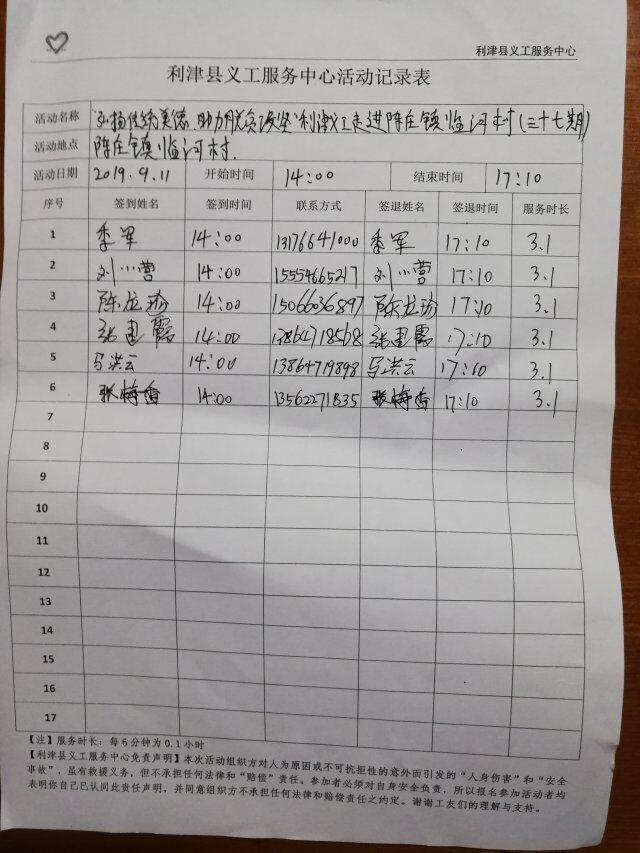 利津县义工服务中心
利津县义工服务中心活动记录表
活动名称 “弘扬传统美德、助力脱贫攻坚”利津义工走进陈庄镇临河村(三十七期)
活动地点 陈庄镇临河村.
活动日期 2019.9.11 开始时间 14:00 结束时间 17:10
序号 签到姓名 签到时间 联系方式 签退姓名 签退时间 服务时长
1 季军 14:00 13176641000 季军 17:10 3.1
2 刘小营 14:00 15554665217 刘小营 17:10 3.1
3 14:00 15066036897 17:10 3.1
4 14:00 13864718568 17:10 3.1
5 马洪云 14:00 13864719898 马洪云 17:10 3.1
6 张梅香 14:00 13562271835 张梅香 17:10 3.1
7
8
9
10
11
12
13
14
15
16
17
【注】服务时长：每6分钟为0.1小时
【利津县义工服务中心免责声明】本次活动组织方对人为原因或不可抗拒性的意外而引发的“人身伤害”和“安全
事故”，虽有救援义务，但不承担任何法律和“赔偿”责任。参加者必须对自身安全负责，所以报名参加活动者均
表明你自己已认同此责任声明，并同意组织方不承担任何法律和赔偿责任之约定。谢谢工友们的理解与支持。